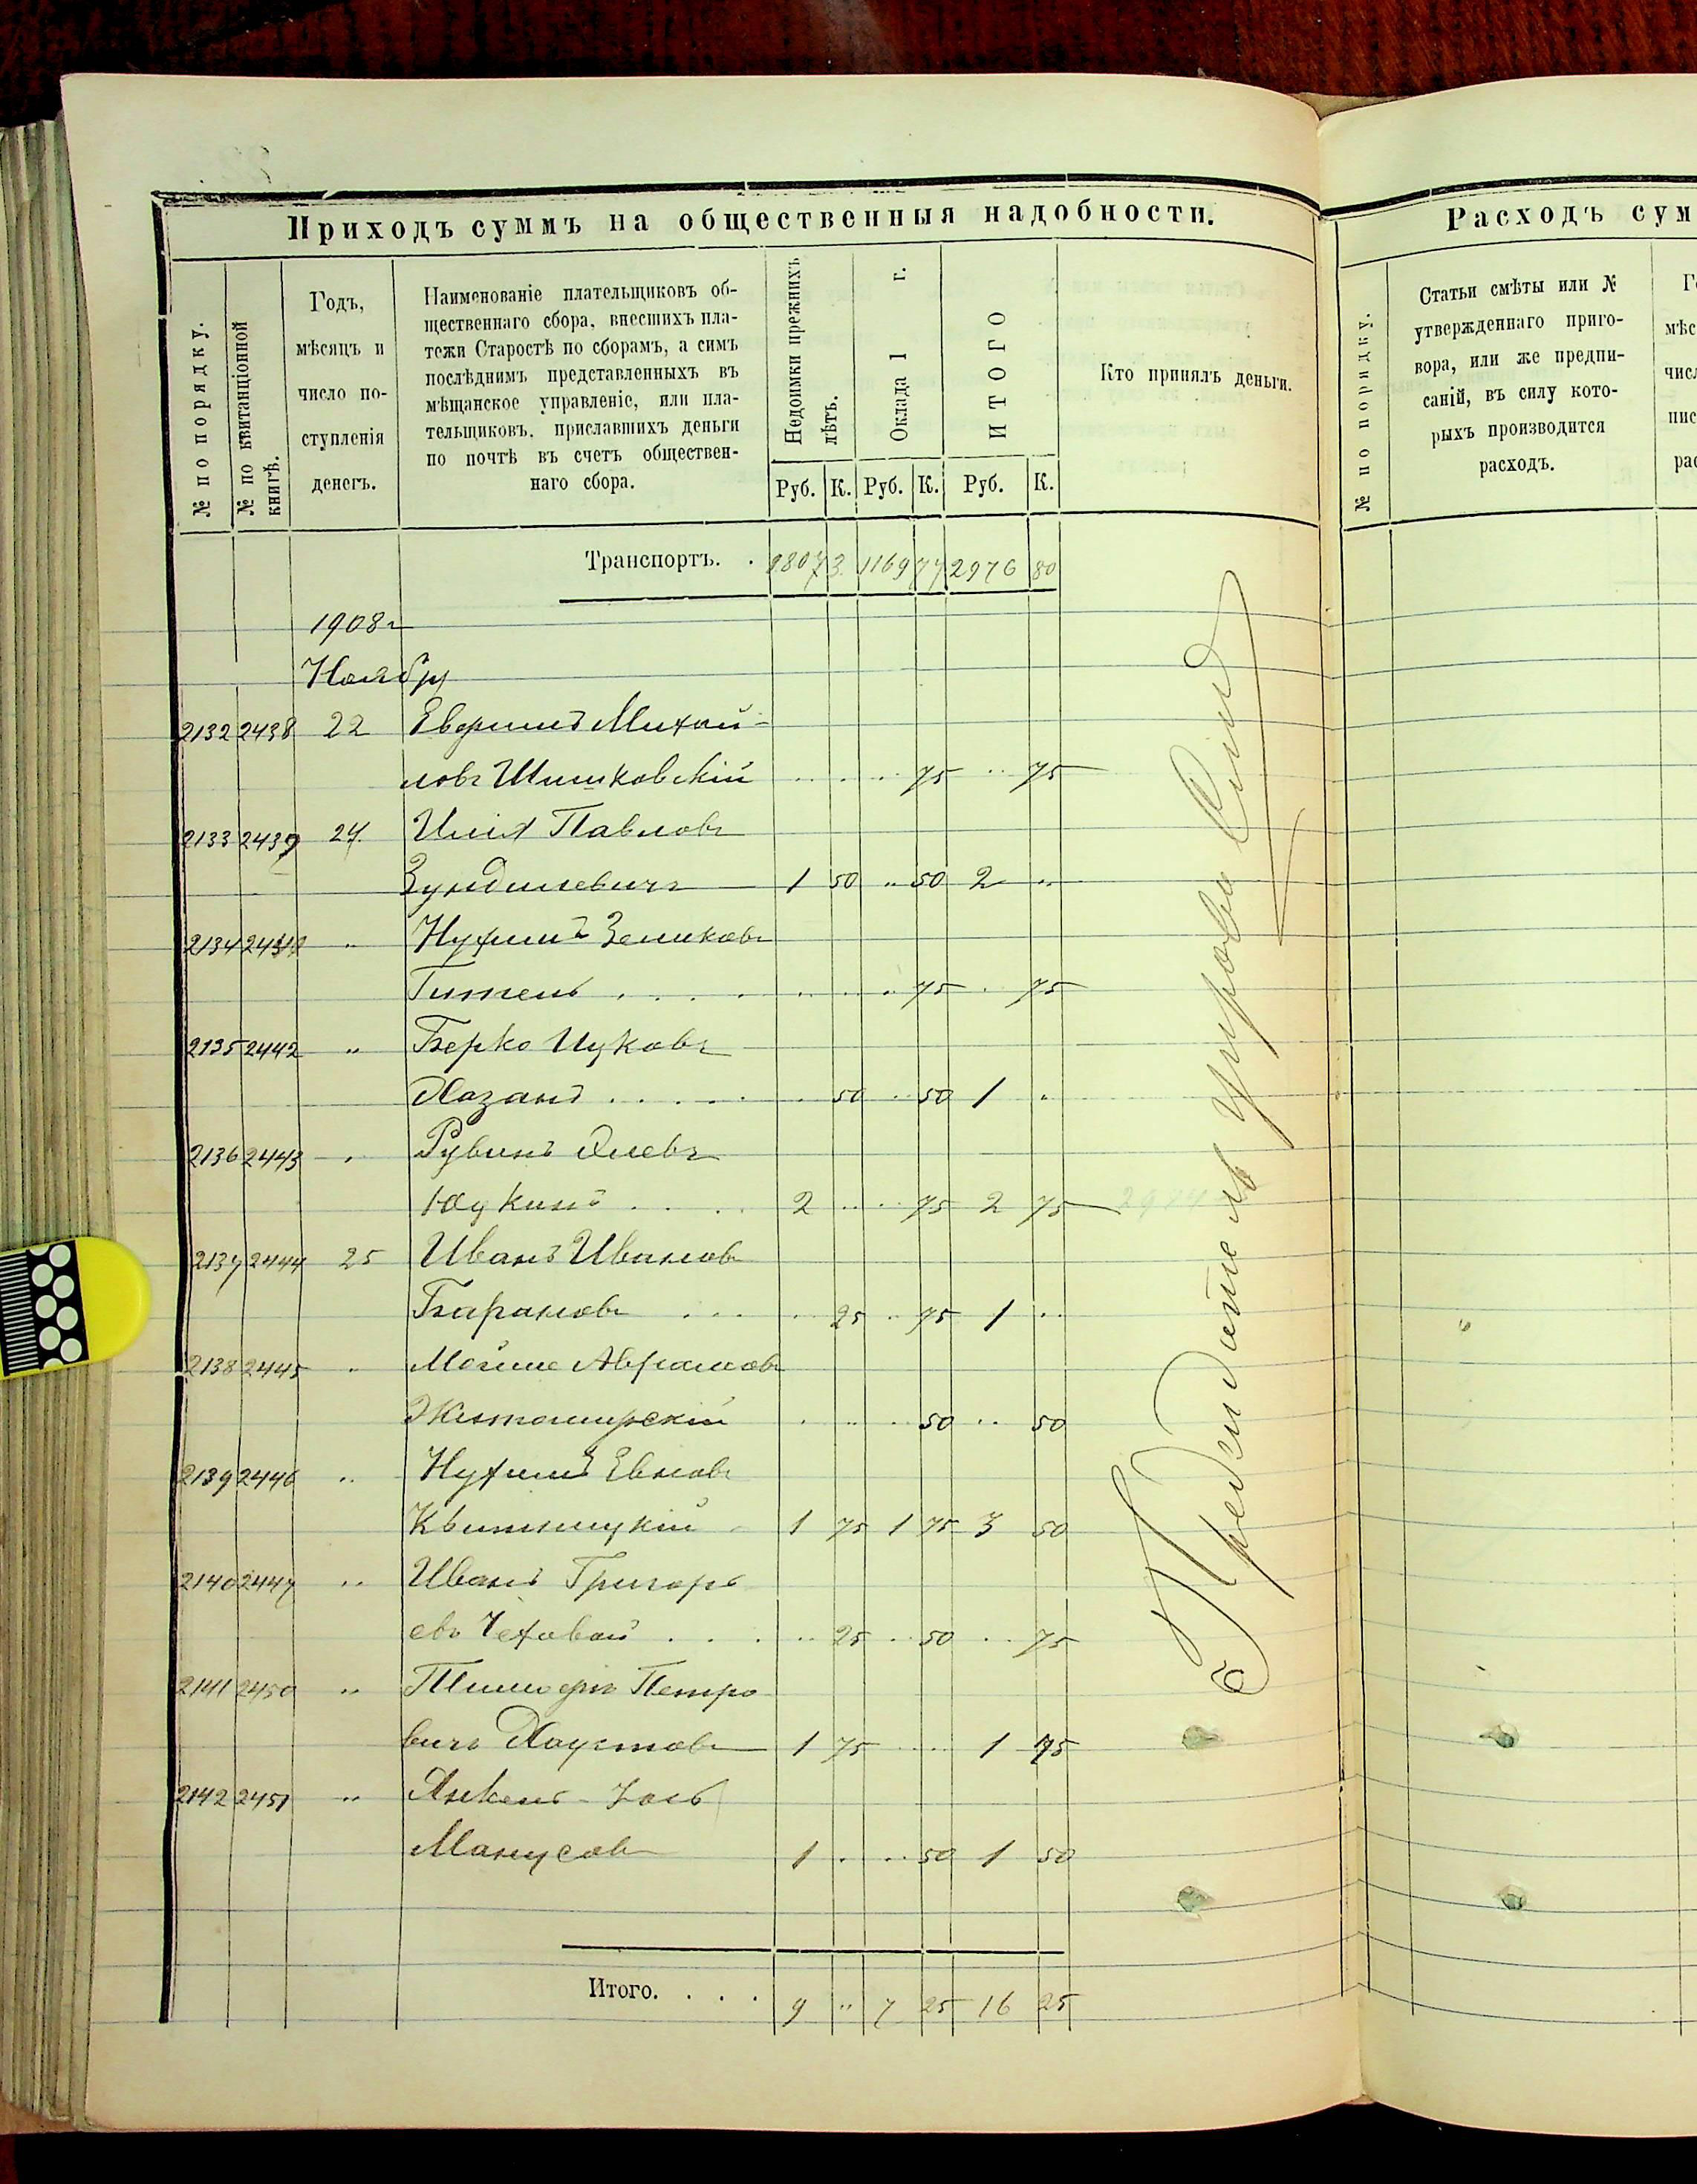 Приходъ суммъ на общественныя надобности.
№ по порядку.
№ по квитанціонной книгѣ.
Годъ,
мѣсяцъ и
число по-
ступленія
денегъ.
Наименованіе плательщиковъ об-
щественнаго сбора, внесшихъ пла-
тежи Старостѣ по сборамъ, а симъ
послѣднимъ представленныхъ въ
мѣщанское управленіе, или пла-
тельщиковъ, приславшихъ деньги
по почтѣ въ счетъ обществен-
наго сбора.
Недоимки прежнихъ лѣтъ.
Оклада 1 г.
ИТОГО
Руб. К. Руб. К. Руб. К.
Кто принялъ деньги.
Транспортъ. . 1807 3 1169 77 2976 80
1908 г
Ноября
2132 2438 22 Ефримъ Михай-
ловъ Шишковскій 75 75
2133 2439 24 Илія Павловъ
Зундилевичъ 1 50 " 50 2 "
2134 " Нухимъ Зеликовъ
75 75
2135 2442 " Берко Ицковъ
Хазанъ 50 50 1 "
2136 2443 " Рувинъ
Юцкинъ 2 75 2 75
2137 2444 25 Иванъ Ивановъ
Барановъ 25 75 1
2138 2445 " Мойше Абрамовъ
Житомирскій 50 50
2139 2446 " Нухимъ Евновъ
Квитницкій 1 75 1 75 3 50
2140 2447 " Иванъ Григорь
евъ Чеховой 25 50 75
2141 2450 " Тимофей Петро
вичъ Хаустовъ 1 75 1 75
2142 2451 " Янкель-Іось
Манусовъ 1 50 1 50
Итого. . . . 9 " 7 25 16 25
Предсѣдатель Управы
Расходъ сум
№ по порядку.
Статьи смѣты или №
утвержденнаго приго-
вора, или же предпи-
саній, въ силу кото-
рыхъ производится
расходъ.